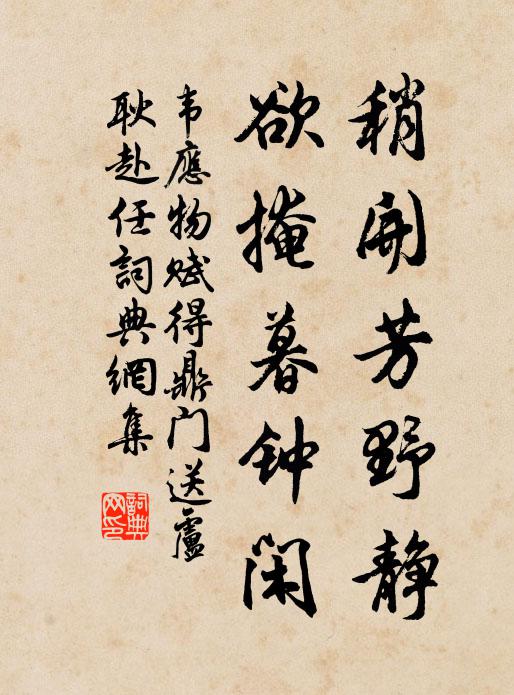 稍開芳野静
欲掩暮钟闲
韦應物赋得鼎门送盧
耿赴任詞典網集
詞典网印